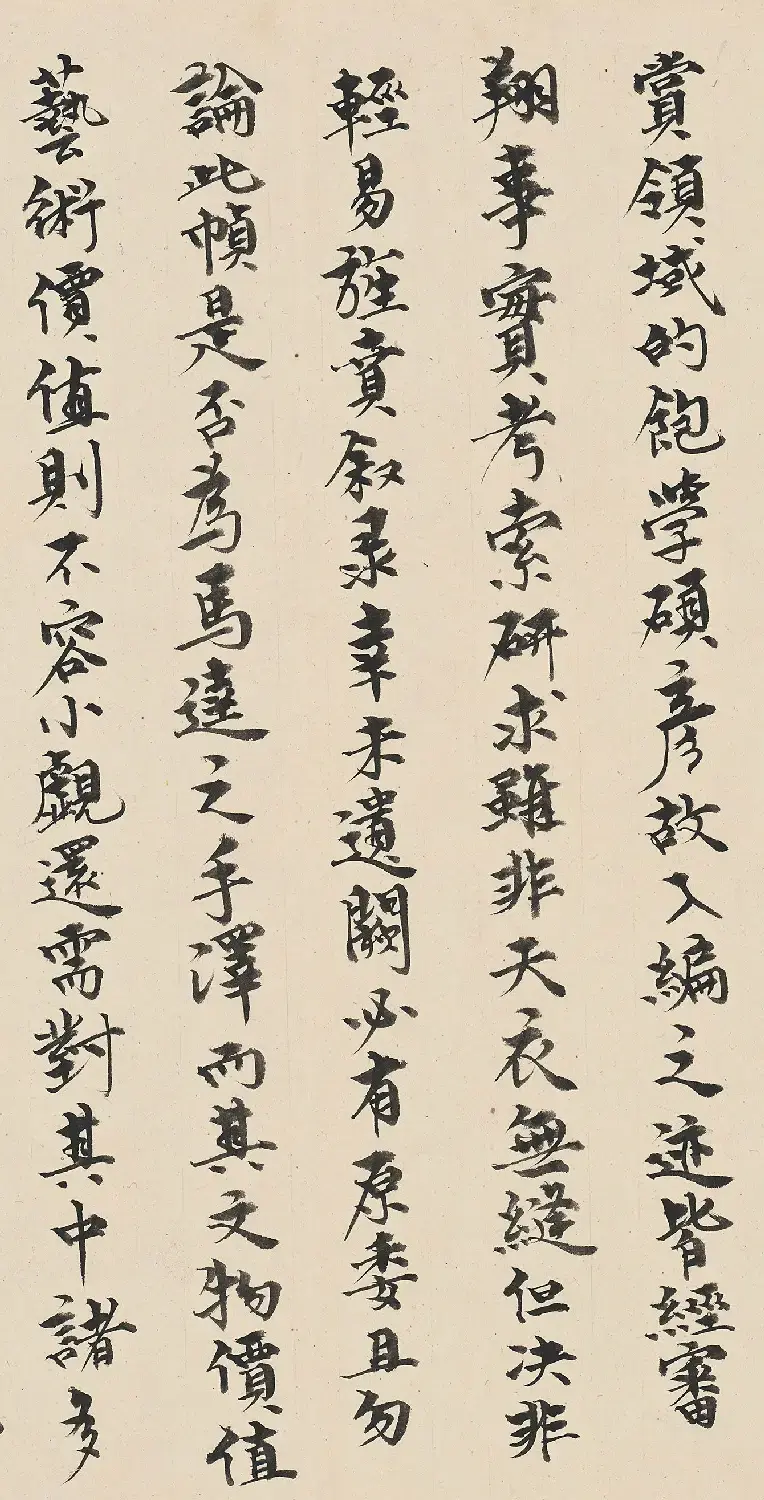 賞領域的飽學碩彥故入編之迹皆經審
翔事實考索研求雖非天衣無縫但決非
輕易旌賁敘录幸未遺闕必有原委且勿
論此幀是否為馬逵之手澤而其文物價值
藝術價值則不容小觑還需對其中諸多